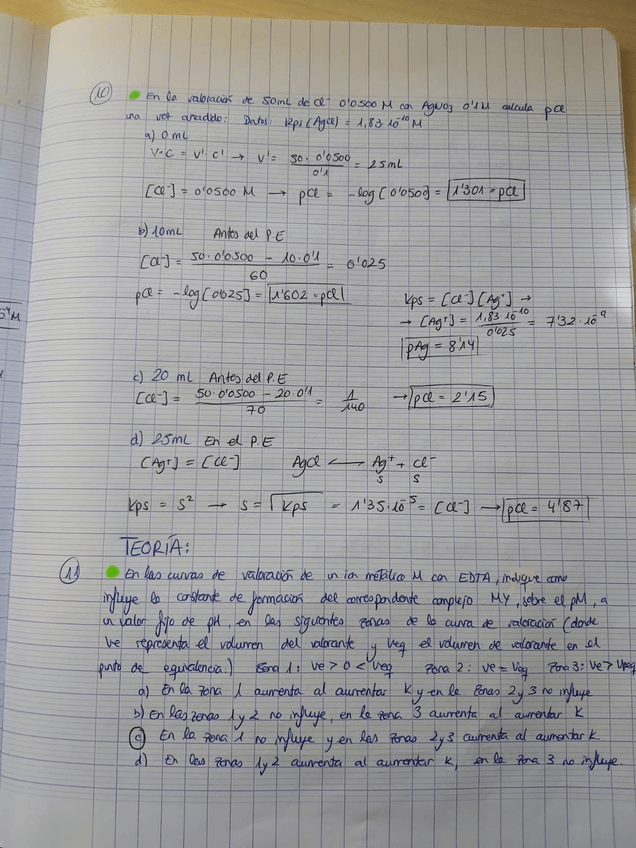 10 En la valoración de 50mL de Cl⁻ 0'0500 M con AgNO3 0'1M calcula pCl
una vez añadido: Datos: Kps (AgCl) = 1,83·10⁻¹⁰ M
a) 0 mL
V·C = V'·C' → V' = 50·0'0500 / 0'1 = 25mL
[Cl⁻] = 0'0500 M → pCl = -log[0'0500] = 1'301 = pCl
b) 10mL Antes del P.E
[Cl⁻] = 50·0'0500 - 10·0'1 / 60 = 0'025
pCl = -log[0'025] = 1'602 = pCl
Kps = [Cl⁻][Ag⁺] →
→ [Ag⁺] = 1,83·10⁻¹⁰ / 0'025 = 7'32·10⁻⁹
pAg = 8'14
c) 20 mL Antes del P.E
[Cl⁻] = 50·0'0500 - 20·0'1 / 70 = 1/140 → pCl = 2'15
d) 25mL En el P.E
[Ag⁺] = [Cl⁻] AgCl ← Ag⁺ + Cl⁻
S S
Kps = S² → S = √Kps = 1'35·10⁻⁵ = [Cl⁻] → pCl = 4'87
TEORÍA:
11 En las curvas de valoración de un ion metálico M con EDTA, indique como
influye la constante de formación del correspondente complejo MY, sobre el pM, a
un valor fijo de pH, en las siguientes zonas de la curva de valoración (donde
Ve representa el volumen del valorante y Veq el volumen de valorante en el
punto de equivalencia.) Zona 1: Ve > 0 < Veq Zona 2: Ve = Veq Zona 3: Ve > Veq
a) En la zona 1 aumenta al aumentar K y en la zonas 2 y 3 no influye
b) En las zonas 1 y 2 no influye, en la zona 3 aumenta al aumentar K
c) En la zona 1 no influye y en las zonas 2 y 3 aumenta al aumentar K.
d) En las zonas 1 y 2 aumenta al aumentar K, en la zona 3 no influye.